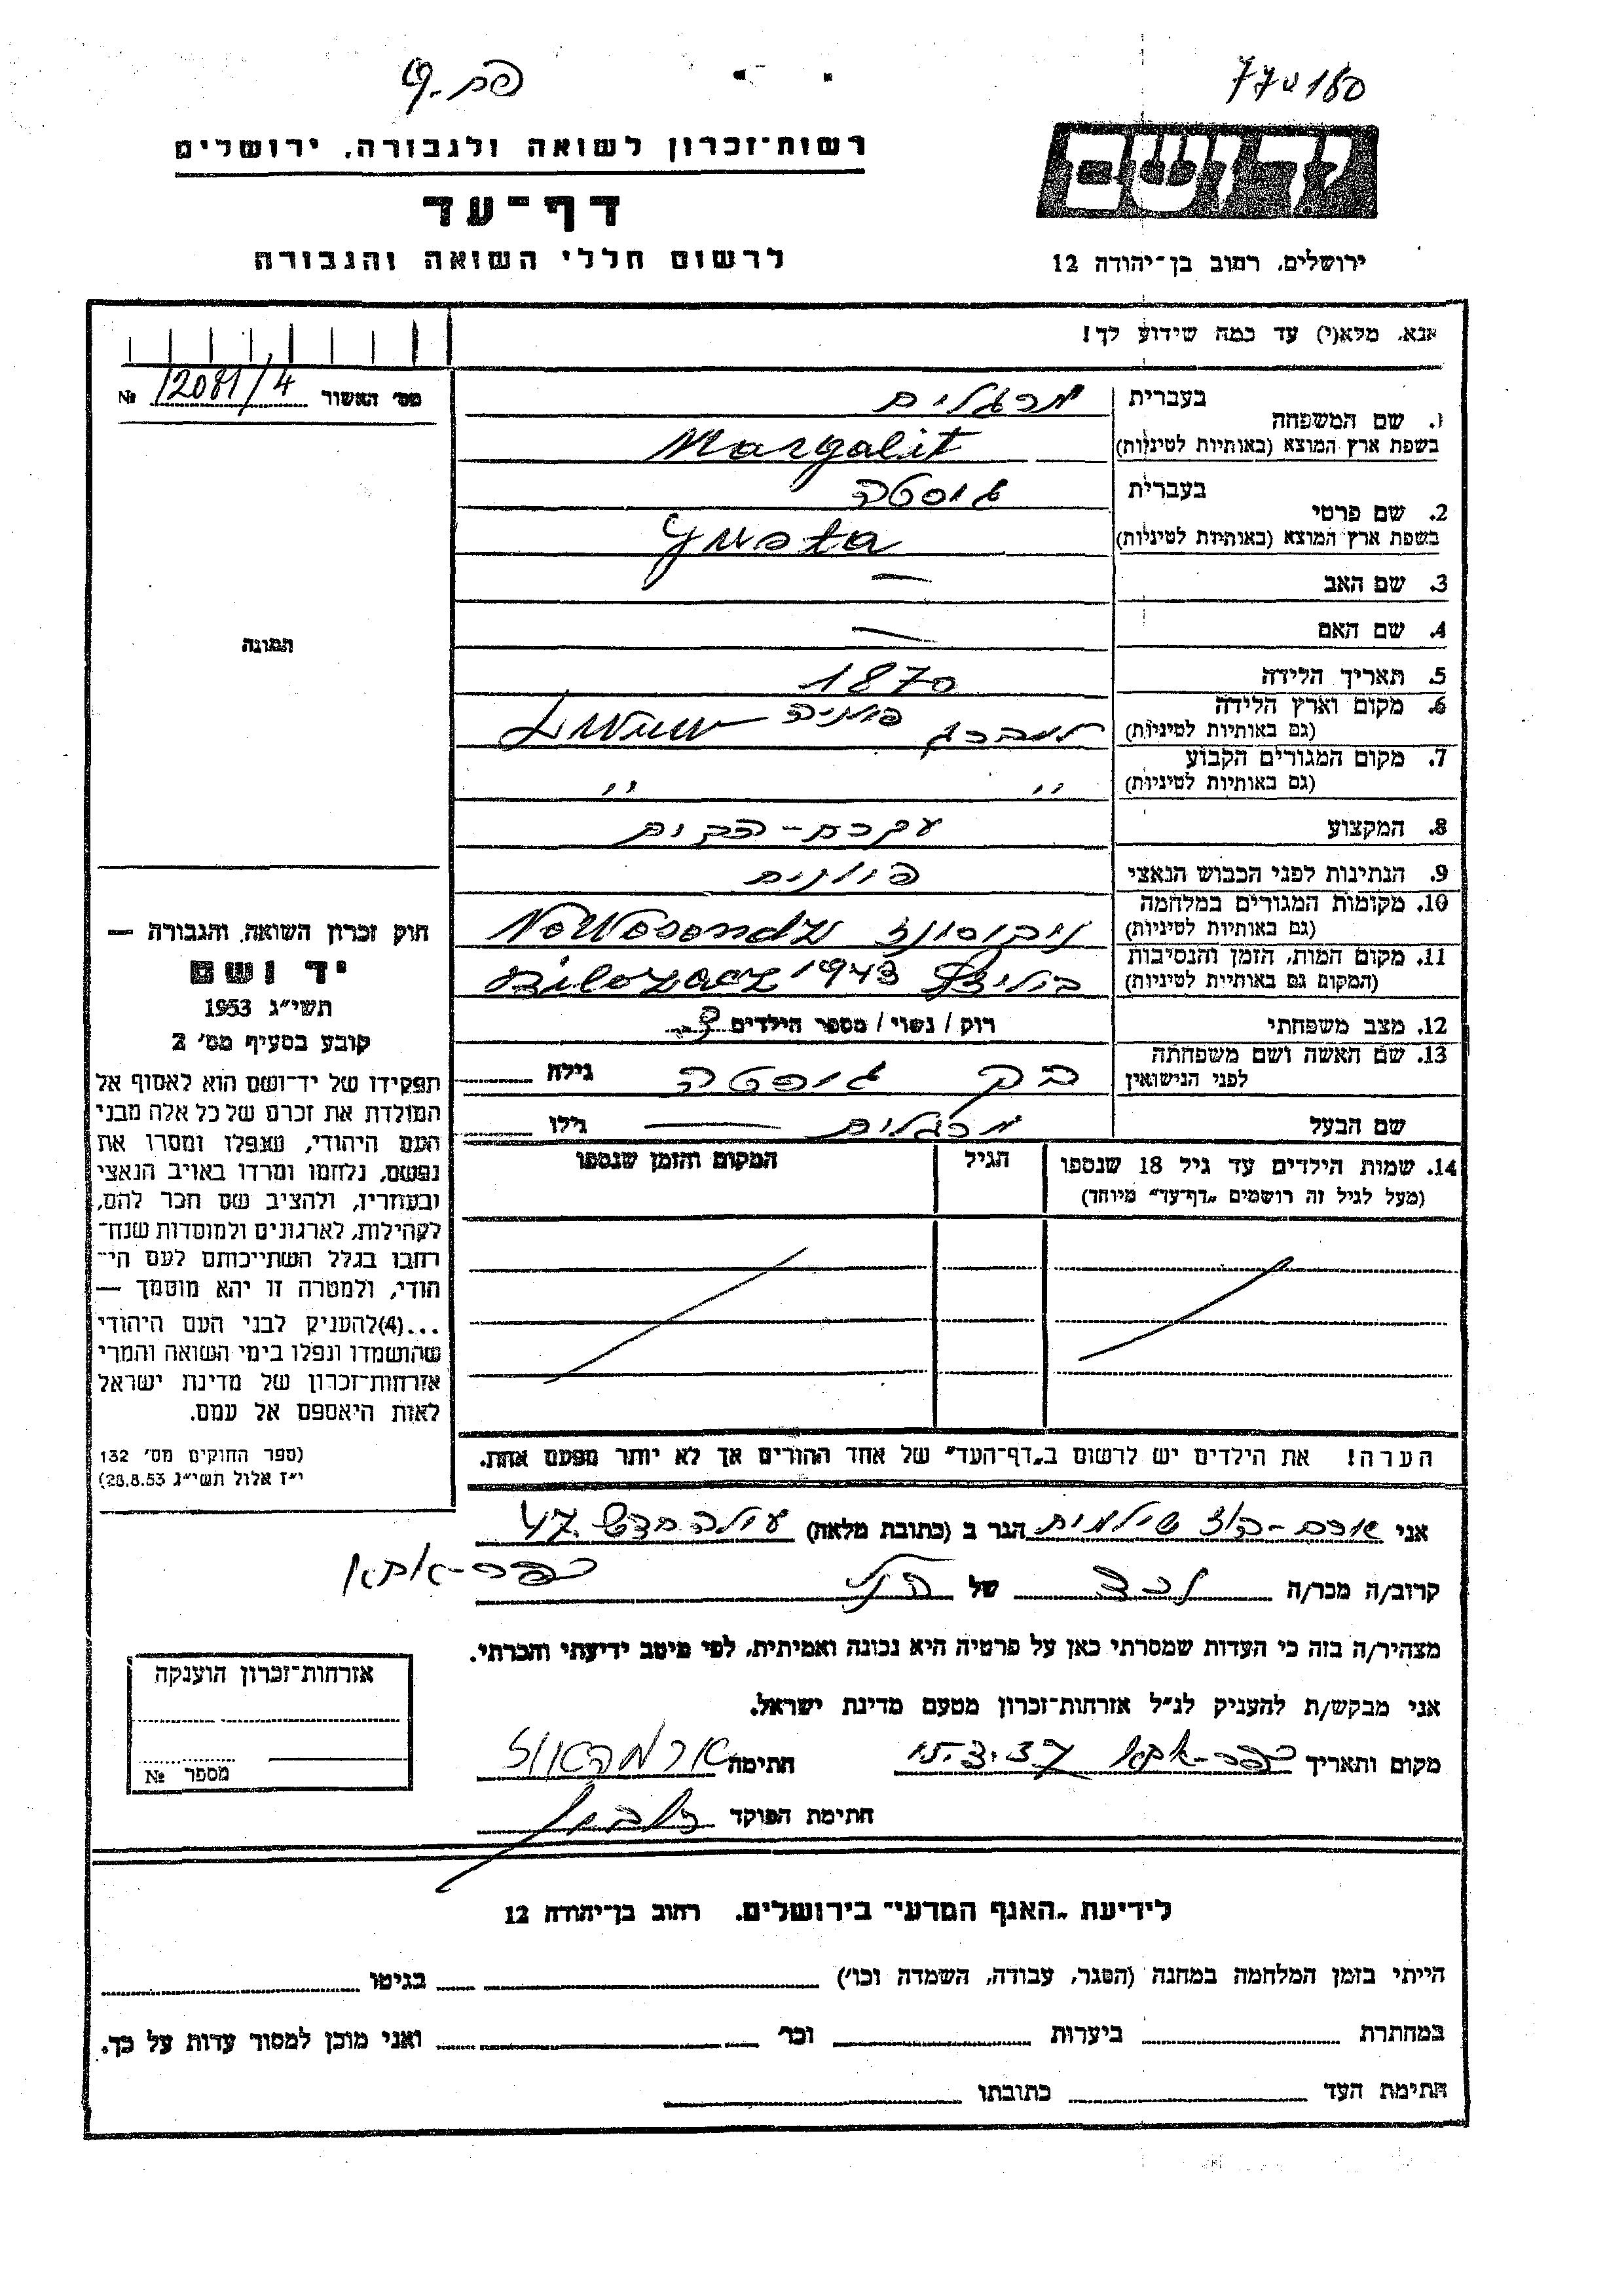 770180
רשות-זכרון לשואה ולגבורה, ירושלים
יד ושם
דף-עד
לרשום חללי השואה והגבורה
ירושלים, רחוב בן-יהודה 12
אנא, מלא(י) עד כמה שידוע לך!
מס' האשור 12081/4 №
1. שם המשפחה
בעברית מרגלית
בשפת ארץ המוצא (באותיות לטיניות) Margalit
2. שם פרטי
בעברית גוסטה
בשפת ארץ המוצא (באותיות לטיניות) Gusta
3. שם האב —
4. שם האם —
5. תאריך הלידה 1870
6. מקום וארץ הלידה למברג פולניה
(גם באותיות לטיניות)
7. מקום המגורים הקבוע " "
(גם באותיות לטיניות)
8. המקצוע עקרת-הבית
9. הנתינות לפני הכבוש הנאצי פולנית
10. מקומות המגורים במלחמה
(גם באותיות לטיניות)
11. מקום המות, הזמן והנסיבות 1943
(המקום גם באותיות לטיניות)
12. מצב משפחתי רוק / נשוי / מספר הילדים 3
13. שם האשה ושם משפחתה
לפני הנישואין בק גוסטה גילה
שם הבעל מרגלית — גילו
14. שמות הילדים עד גיל 18 שנספו
(מעל לגיל זה רושמים "דף-עד" מיוחד)
הגיל
המקום והזמן שנספו
הערה! את הילדים יש לרשום ב"דף-העד" של אחד ההורים אך לא יותר מפעם אחת.
תמונה
חוק זכרון השואה והגבורה —
יד ושם
תשי"ג 1953
קובע בסעיף מס' 2
תפקידו של יד-ושם הוא לאסוף אל
המולדת את זכרם של כל אלה מבני
העם היהודי, שנפלו ומסרו את
נפשם, נלחמו ומרדו באויב הנאצי
ובעוזריו, ולהציב שם וזכר להם,
לקהילות, לארגונים ולמוסדות שנח-
רבו בגלל השתייכותם לעם הי-
הודי, ולמטרה זו יהא מוסמך —
...(4)להעניק לבני העם היהודי
שהושמדו ונפלו בימי השואה והמרי
אזרחות-זכרון של מדינת ישראל
לאות היאספם אל עמם.
(ספר החוקים מס' 132
י"ז אלול תשי"ג 28.8.53)
אני שולמית הגר ב (כתובת מלאה) 47
קרוב/ה מכר/ה נכד של הנ"ל
מצהיר/ה בזה כי העדות שמסרתי כאן על פרטיה היא נכונה ואמיתית, לפי מיטב ידיעתי והכרתי.
אני מבקש/ת להעניק לנ"ל אזרחות-זכרון מטעם מדינת ישראל.
מקום ותאריך חתימה
חתימת הפוקד
אזרחות-זכרון הוענקה
מספר №
לידיעת "האגף המדעי" בירושלים. רחוב בן-יהודה 12
הייתי בזמן המלחמה במחנה (הסגר, עבודה, השמדה וכו') בגיטו
במחתרת ביערות וכו' ואני מוכן למסור עדות על כך.
חתימת העד כתובתו